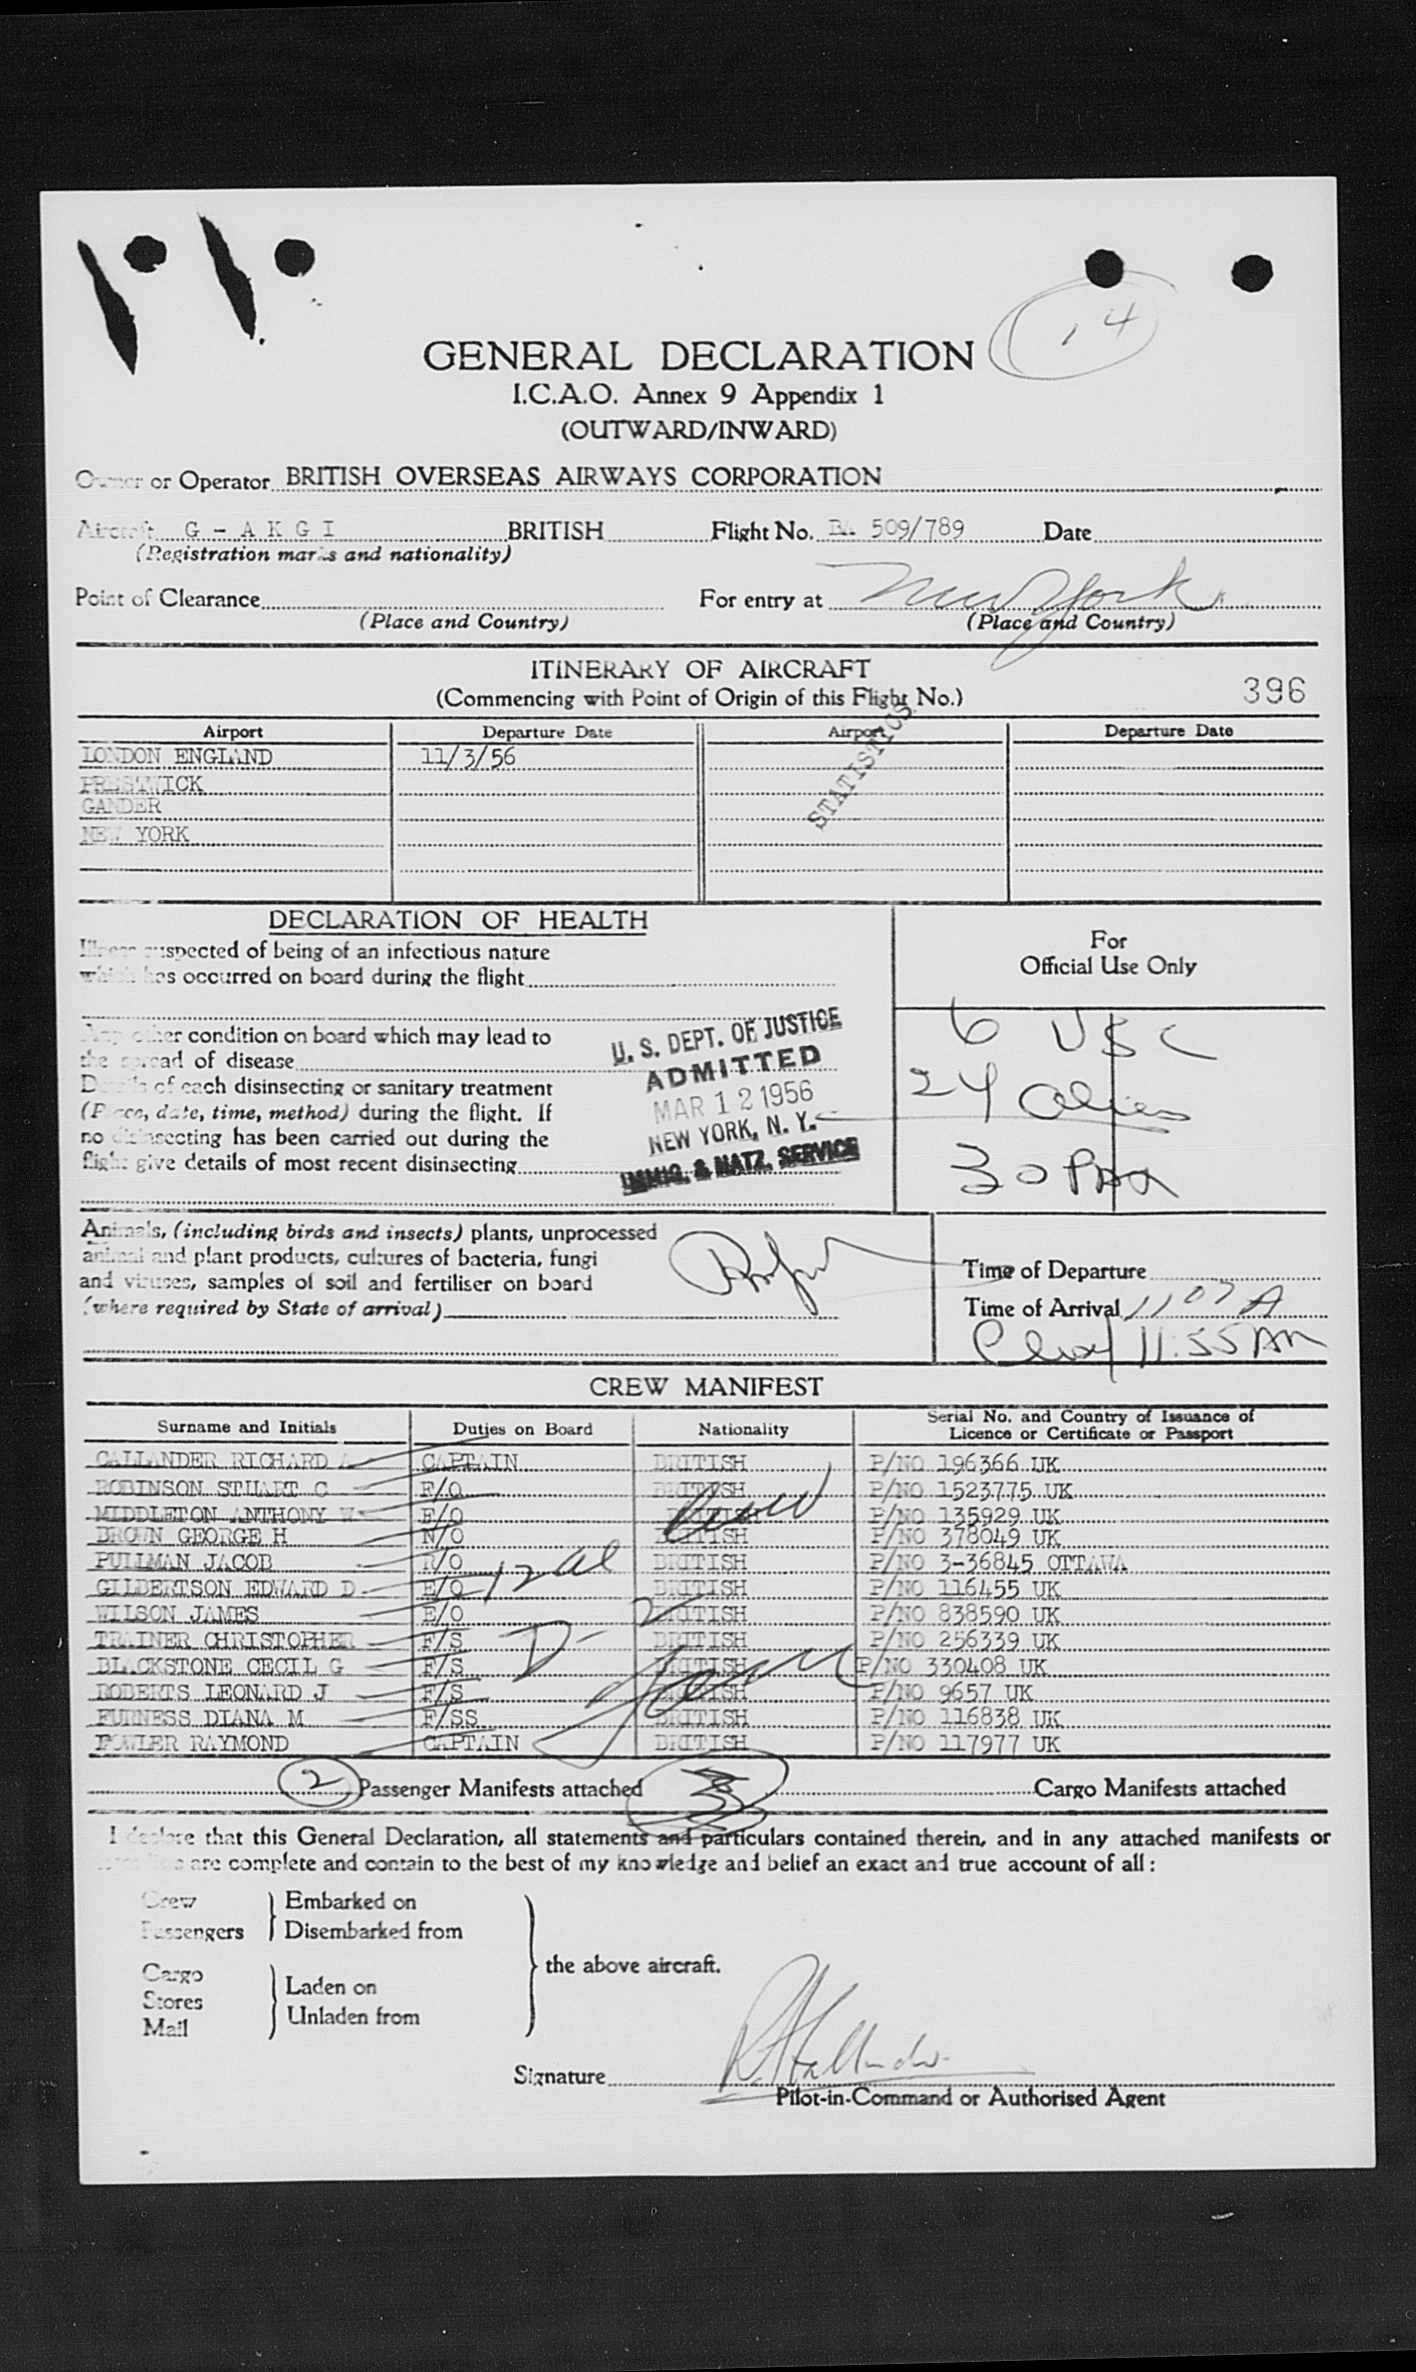 14
GENERAL DECLARATION
I.C.A.O. Annex 9 Appendix 1
(OUTWARD/INWARD)
Owner or Operator BRITISH OVERSEAS AIRWAYS CORPORATION
Aircraft G - A K G I BRITISH Flight No. BA. 509/789 Date
(Registration marks and nationality)
Point of Clearance For entry at New York
(Place and Country) (Place and Country)
ITINERARY OF AIRCRAFT
(Commencing with Point of Origin of this Flight No.) 396
Airport Departure Date Airport Departure Date
STATISTICS
LONDON ENGLAND 11/3/56
PRESTWICK
GANDER
NEW YORK
DECLARATION OF HEALTH
Illness suspected of being of an infectious nature
which has occurred on board during the flight
Any other condition on board which may lead to
the spread of disease
Details of each disinsecting or sanitary treatment
(Place, date, time, method) during the flight. If
no disinsecting has been carried out during the
flight give details of most recent disinsecting
U. S. DEPT. OF JUSTICE
ADMITTED
MAR 12 1956
NEW YORK, N. Y.
IMMIG. & NATZ. SERVICE
For
Official Use Only
6 USC
24 aliens
30 PAX
Animals, (including birds and insects) plants, unprocessed
animal and plant products, cultures of bacteria, fungi
and viruses, samples of soil and fertiliser on board
(where required by State of arrival)
Time of Departure
Time of Arrival 1107 A
11:55 AM
CREW MANIFEST
Surname and Initials Duties on Board Nationality Serial No. and Country of Issuance of Licence or Certificate or Passport
CALLANDER RICHARD A CAPTAIN BRITISH P/NO 196366 UK
ROBINSON STUART C F/O BRITISH P/NO 1523775 UK
MIDDLETON ANTHONY W F/O BRITISH P/NO 135929 UK
BROWN GEORGE H N/O BRITISH P/NO 378049 UK
PULLMAN JACOB R/O BRITISH P/NO 3-36845 OTTAWA
GILBERTSON EDWARD D E/O BRITISH P/NO 116455 UK
WILSON JAMES E/O BRITISH P/NO 838590 UK
TRAINER CHRISTOPHER F/S BRITISH P/NO 256339 UK
BLACKSTONE CECIL G F/S BRITISH P/NO 330408 UK
ROBERTS LEONARD J F/S BRITISH P/NO 9657 UK
FURNESS DIANA M F/SS BRITISH P/NO 116838 UK
FOWLER RAYMOND CAPTAIN BRITISH P/NO 117977 UK
12 al
D-2
2 Passenger Manifests attached 3 Cargo Manifests attached
I declare that this General Declaration, all statements and particulars contained therein, and in any attached manifests or
are complete and contain to the best of my knowledge and belief an exact and true account of all :
Crew
Passengers
Embarked on
Disembarked from
Cargo
Stores
Mail
Laden on
Unladen from
the above aircraft.
Signature
Pilot-in-Command or Authorised Agent